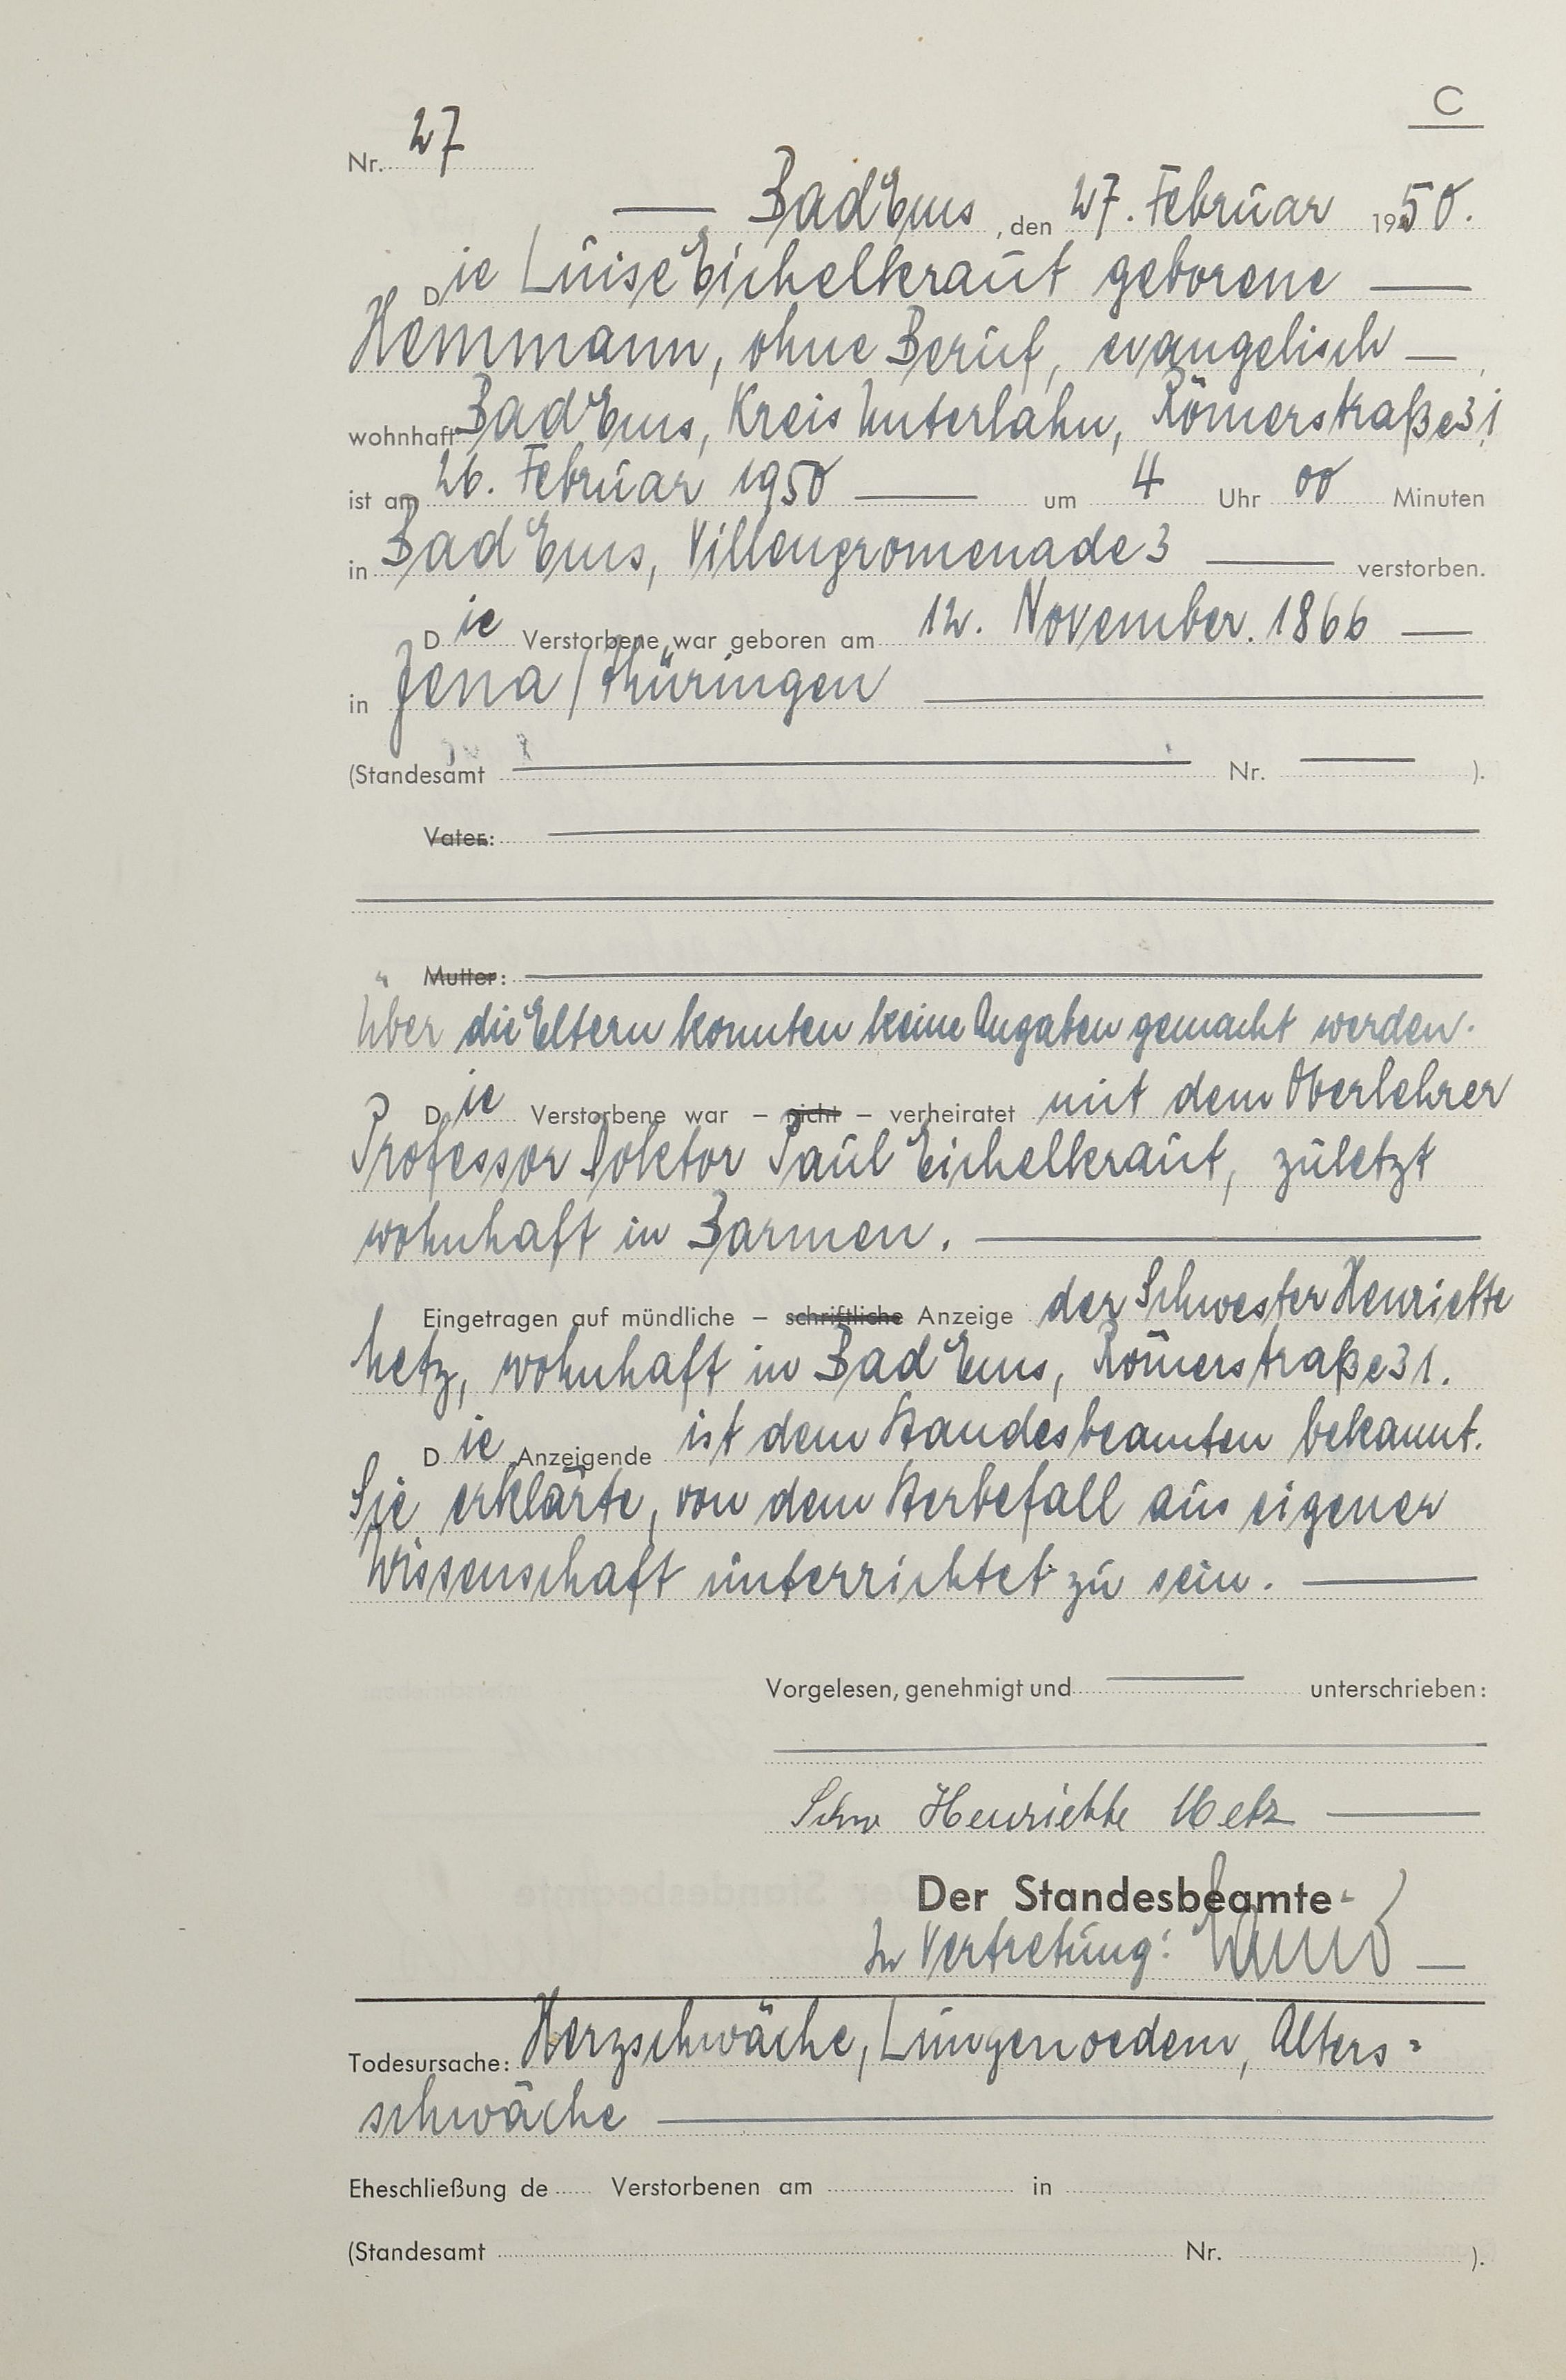 C
Nr. 27
Bad Ems, den 27. Februar 1950.
Die Luise Eichelkraut geborene
Hemmann, ohne Beruf, evangelisch
wohnhaft Bad Ems, Kreis Unterlahn, Römerstraße 31
ist am 26. Februar 1950 um 4 Uhr 00 Minuten
in Bad Ems, Villenpromenade 3 verstorben.
Die Verstorbene war geboren am 12. November. 1866
in Jena/Thüringen
(Standesamt Nr. ).
Vater:
Mutter:
Über die Eltern konnten keine Angaben gemacht werden.
Die Verstorbene war – nicht – verheiratet mit dem Oberlehrer
Professor Doktor Paul Eichelkraut, zuletzt
wohnhaft in Barmen.
Eingetragen auf mündliche – schriftliche Anzeige der Schwester Henriette
Metz, wohnhaft in Bad Ems, Römerstraße 31.
Die Anzeigende ist dem Standesbeamten bekannt.
Sie erklärte, von dem Sterbefall aus eigener
Wissenschaft unterrichtet zu sein.
Vorgelesen, genehmigt und unterschrieben:
Schw Henriette Metz
Der Standesbeamte
In Vertretung:
Todesursache: Herzschwäche, Lungenoedem, Alters=
schwäche
Eheschließung de Verstorbenen am in
(Standesamt Nr. ).